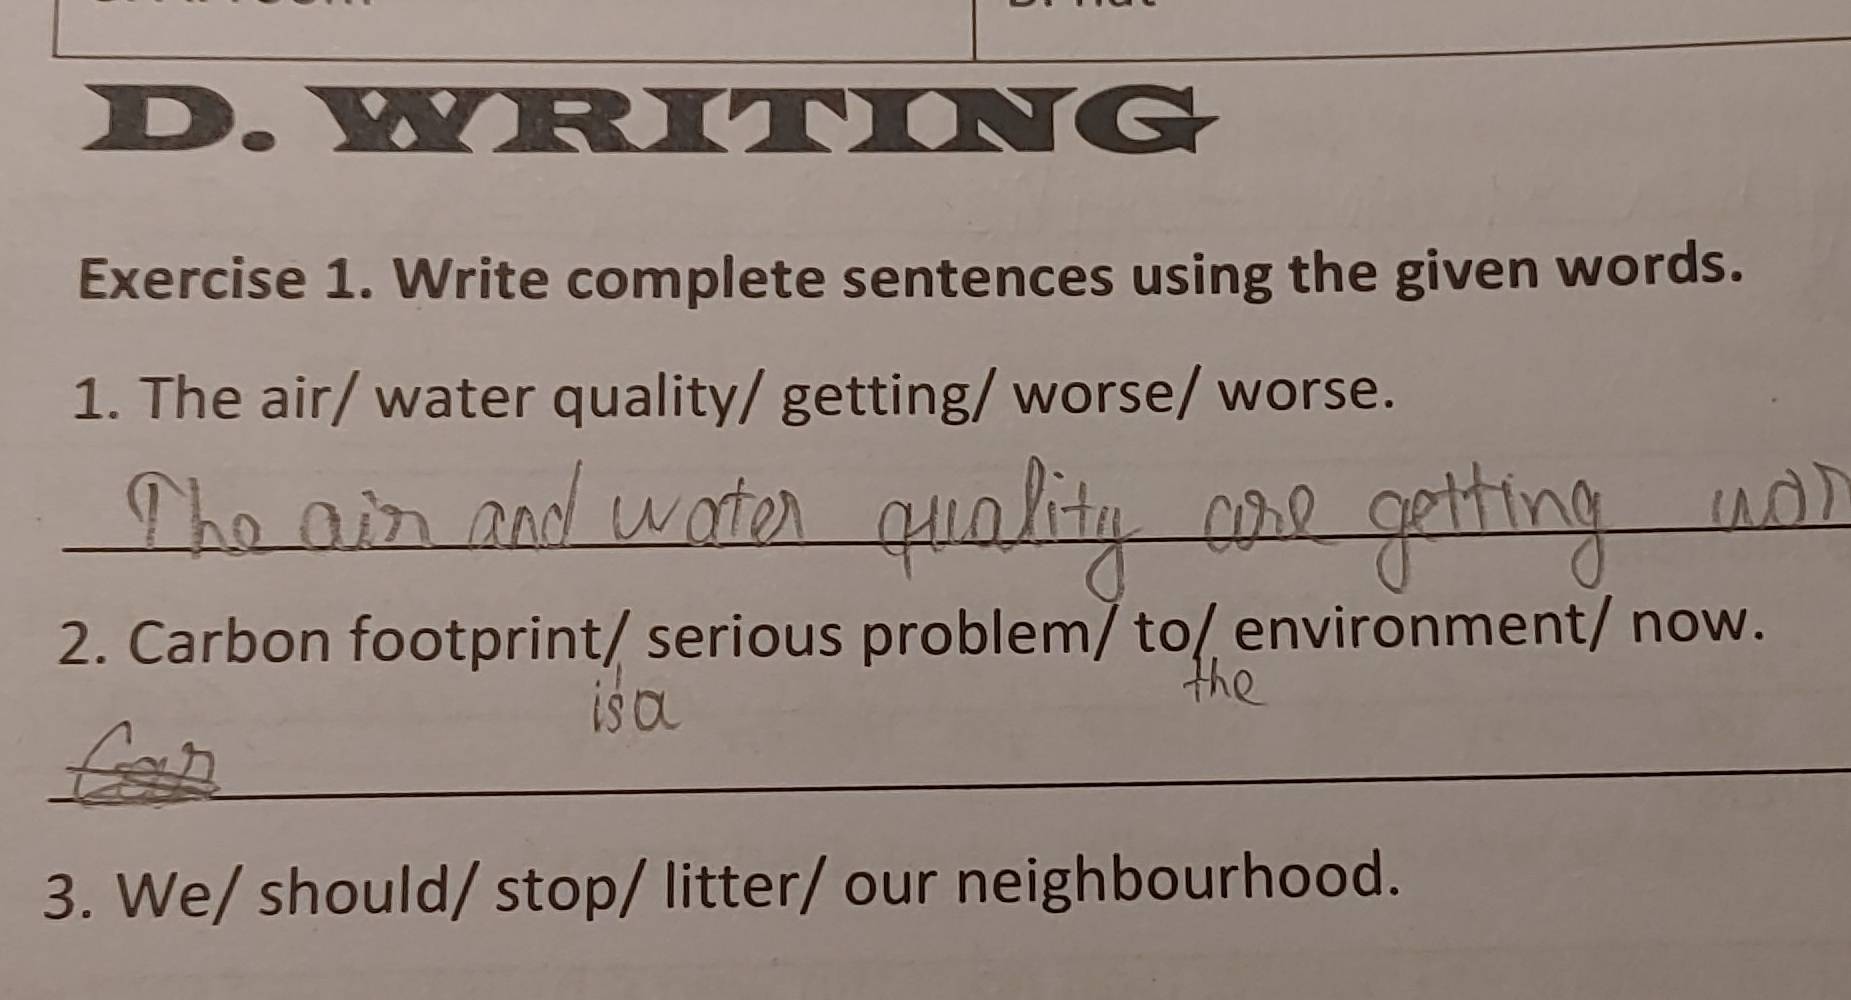 D. WRITING
Exercise 1. Write complete sentences using the given words.
1. The air/ water quality/ getting/ worse/ worse.
The air and water quality are getting wor
2. Carbon footprint/ serious problem/ to/ environment/ now.
is a the
Car
3. We/ should/ stop/ litter/ our neighbourhood.